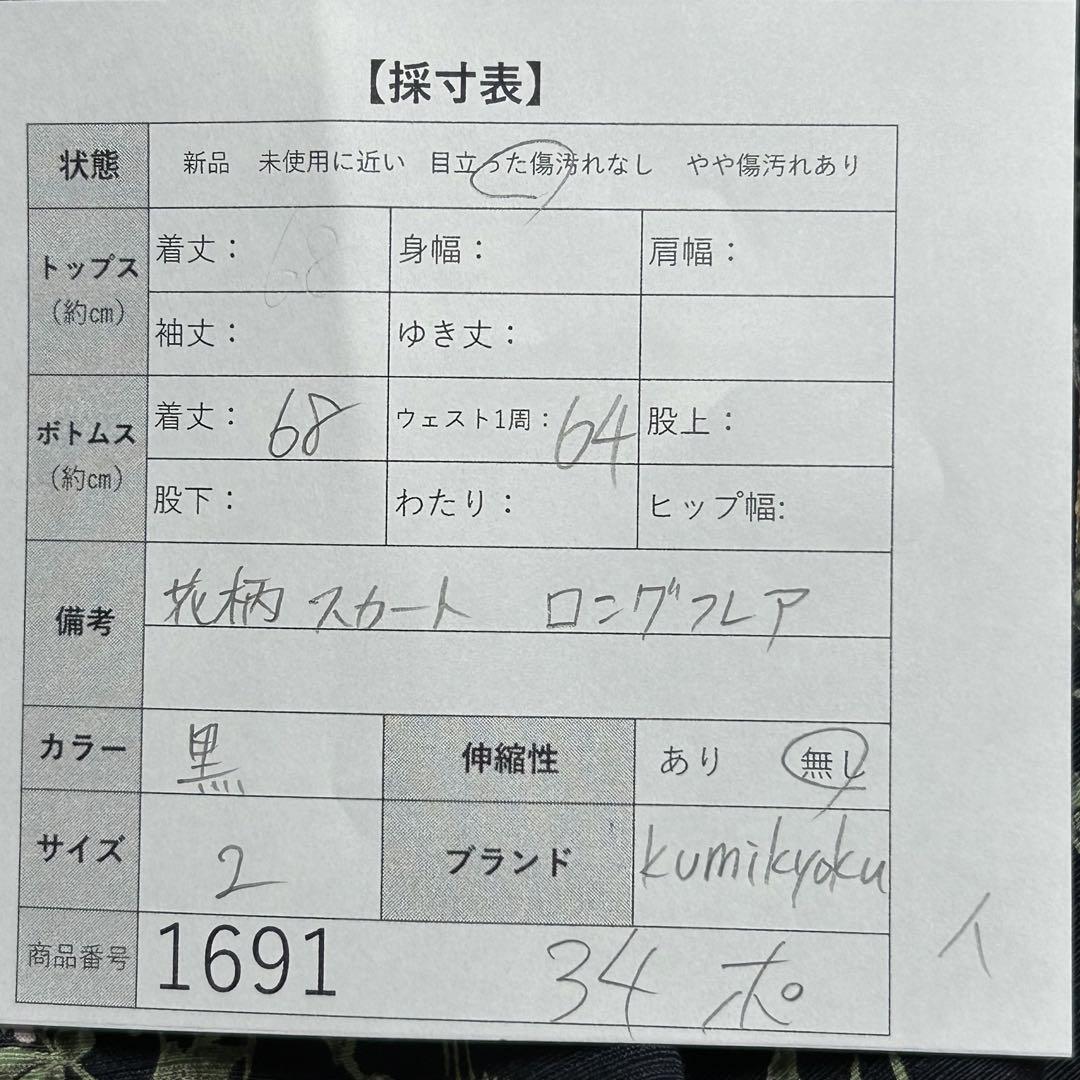 【採寸表】
状態 新品 未使用に近い 目立った傷汚れなし やや傷汚れあり
トップス (約cm)
着丈: 68 身幅: 肩幅:
袖丈: ゆき丈:
ボトムス (約cm)
着丈: 68 ウェスト1周: 64 股上:
股下: わたり: ヒップ幅:
備考 花柄 スカート ロングフレア
カラー 黒 伸縮性 あり 無し
サイズ 2 ブランド kumikyoku
商品番号 1691 34 ポ
イ